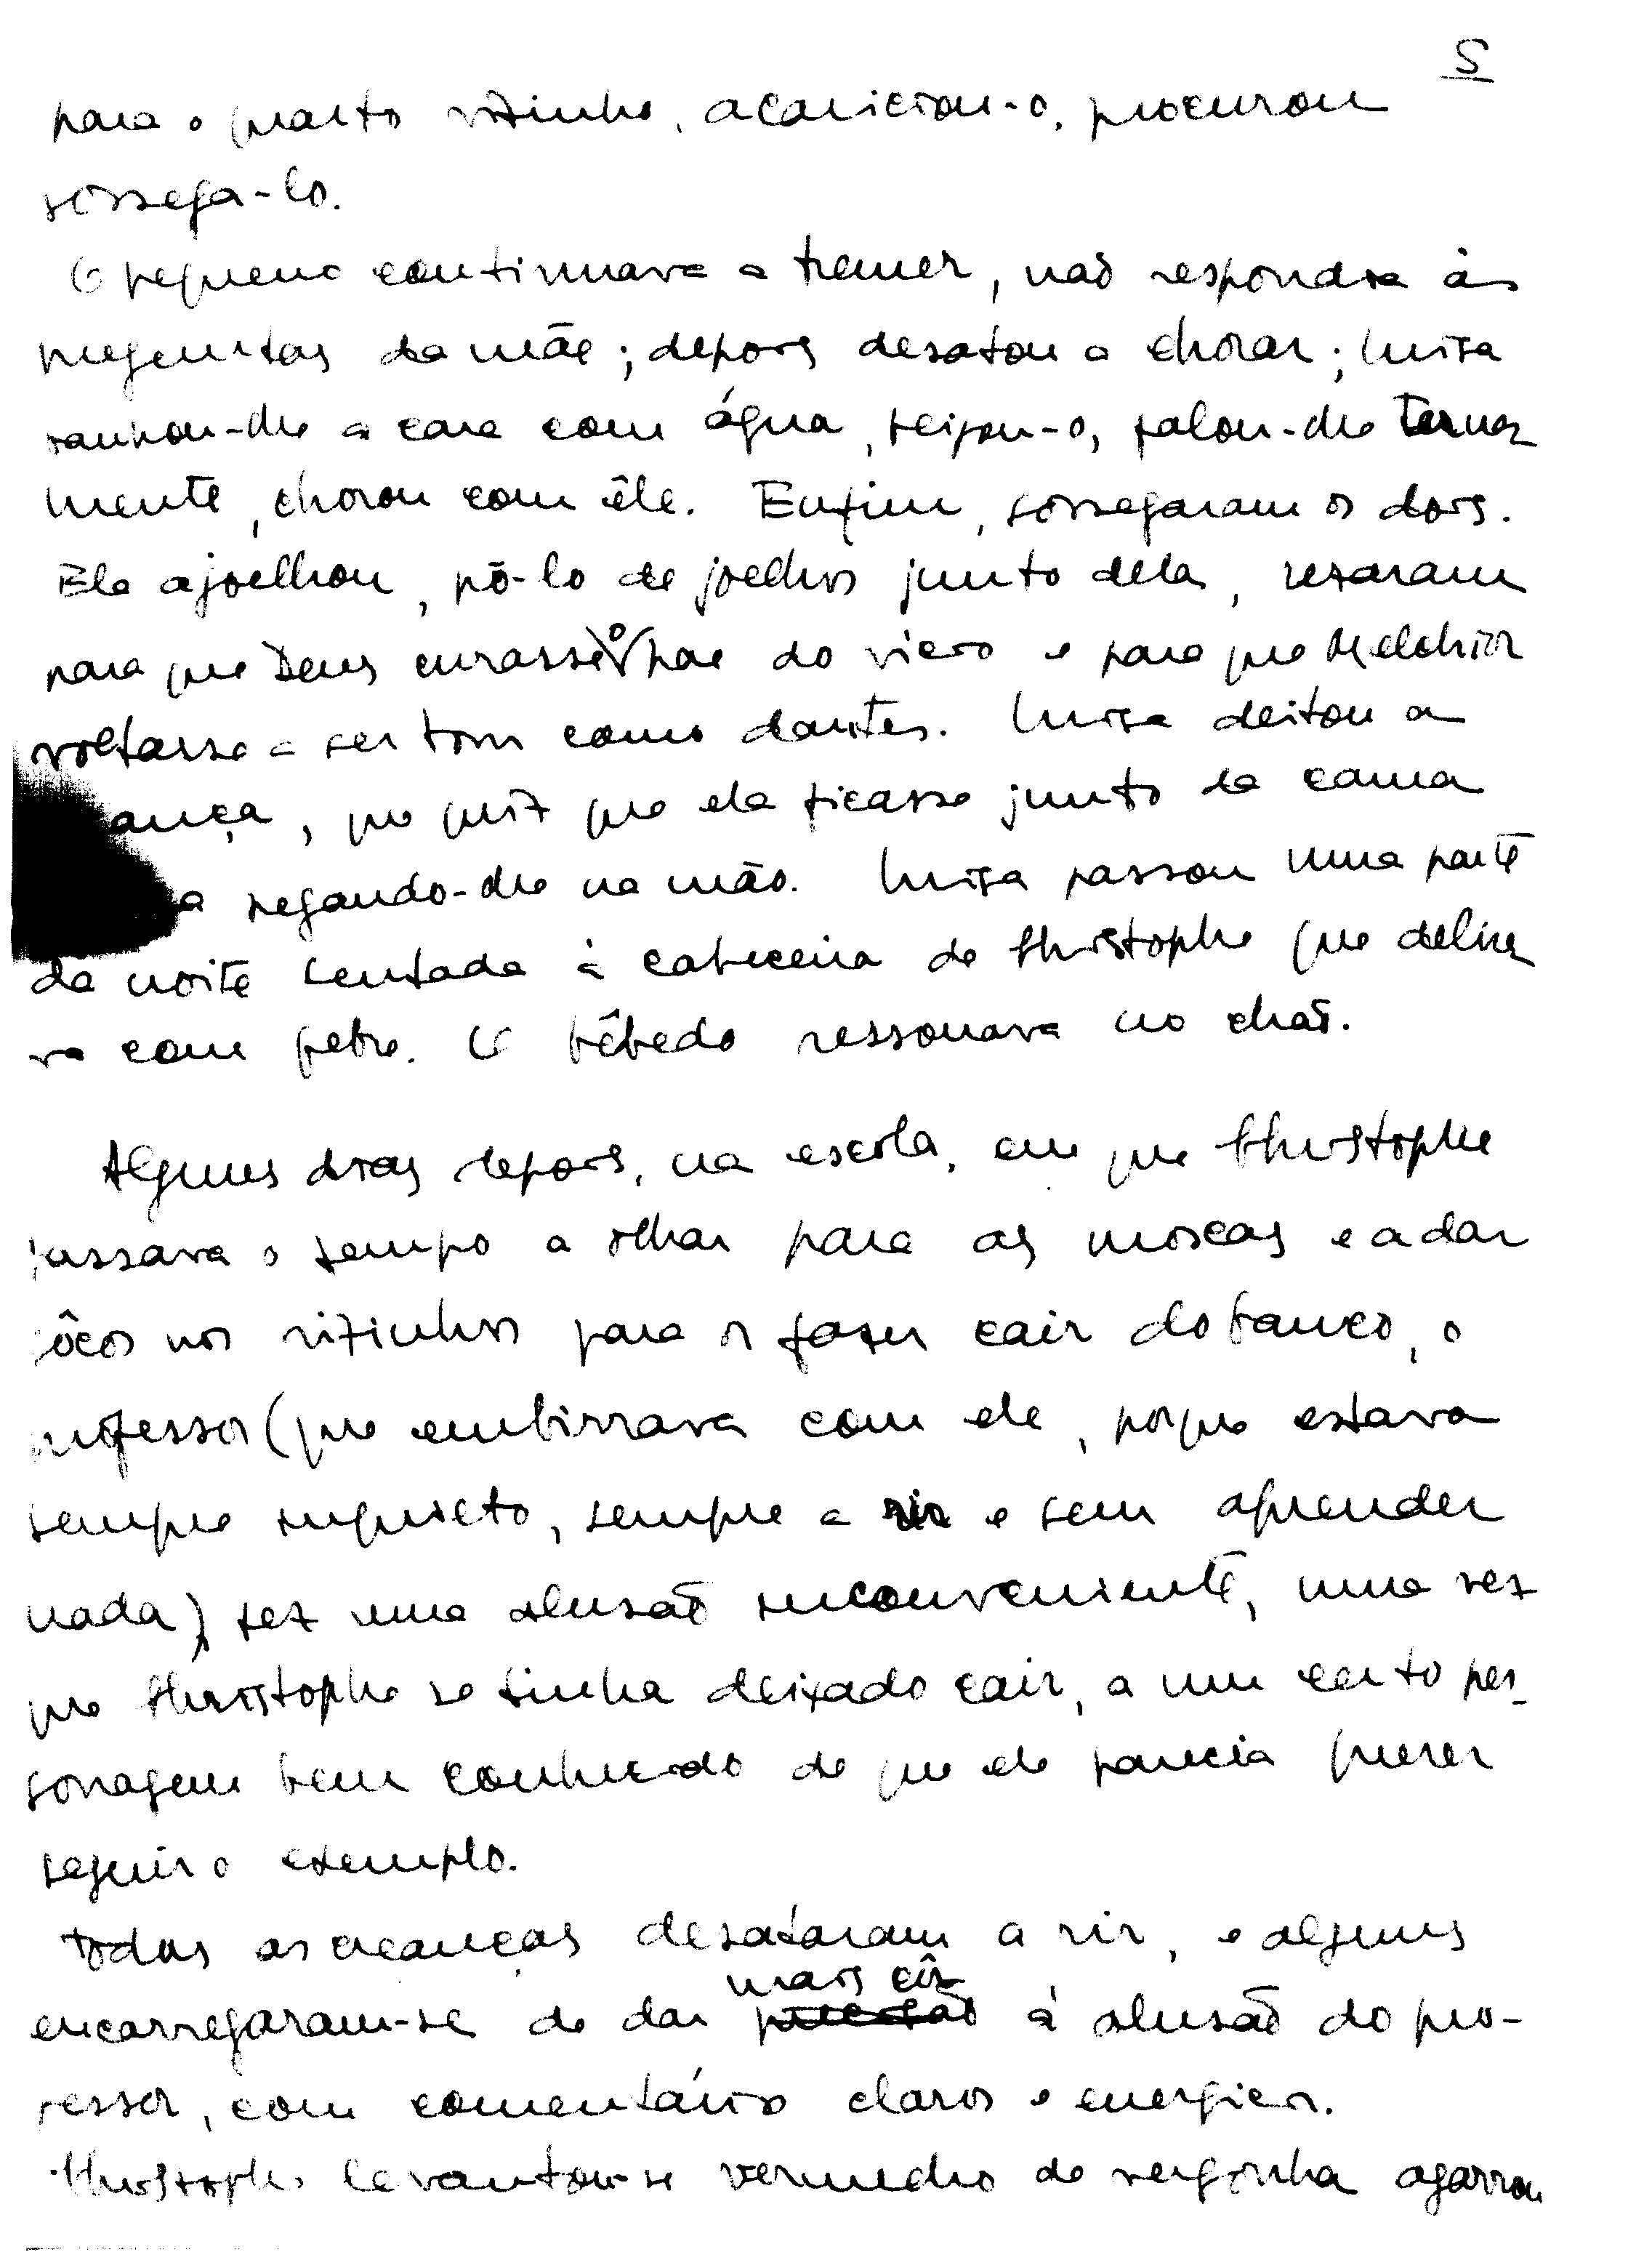 5
para o quarto vizinho, acariciou-o, procurou
sossega-lo.
O pequeno continuava a tremer, não respondia às
preguntas da mãe; depois desatou a chorar; Luisa
banhou-lhe a cara com água, beijou-o, falou-lhe terna
mente, chorou com êle. Enfim, sossegaram os dois.
Ela ajoelhou, pô-lo de joelhos junto dela, rezaram
para que Deus curasse o pae do vicio e para que Melchior
voltasse a ser bom como dantes. Luisa deitou a
ança, que quiz que ela ficasse junto da cama
a pegando-lhe na mão. Luisa passou uma parte
da noite sentada à cabeceira de Christophe que delira
va com febre. O bêbedo ressonava no chão.
Algums dias depois, na escola, em que Christophe
passava o tempo a olhar para as moscas e a dar
sôcos nos vizinhos para os fazer cair do banco, o
professor (que embirrava com ele, porque estava
sempre inquieto, sempre a rir e sem aprender
nada), fez uma alusão inconveniente, uma vez
que Christophe se tinha deixado cair, a um certo per-
sonagem bem conhecido de que ele parecia querer
seguir o exemplo.
Todas as creanças desataram a rir, e algums
mais côr
encarregaram-se de dar precisão à alusão do pro-
fessor, com comentários claros e energicos.
Christophe levantou-se vermelho de vergonha agarrou